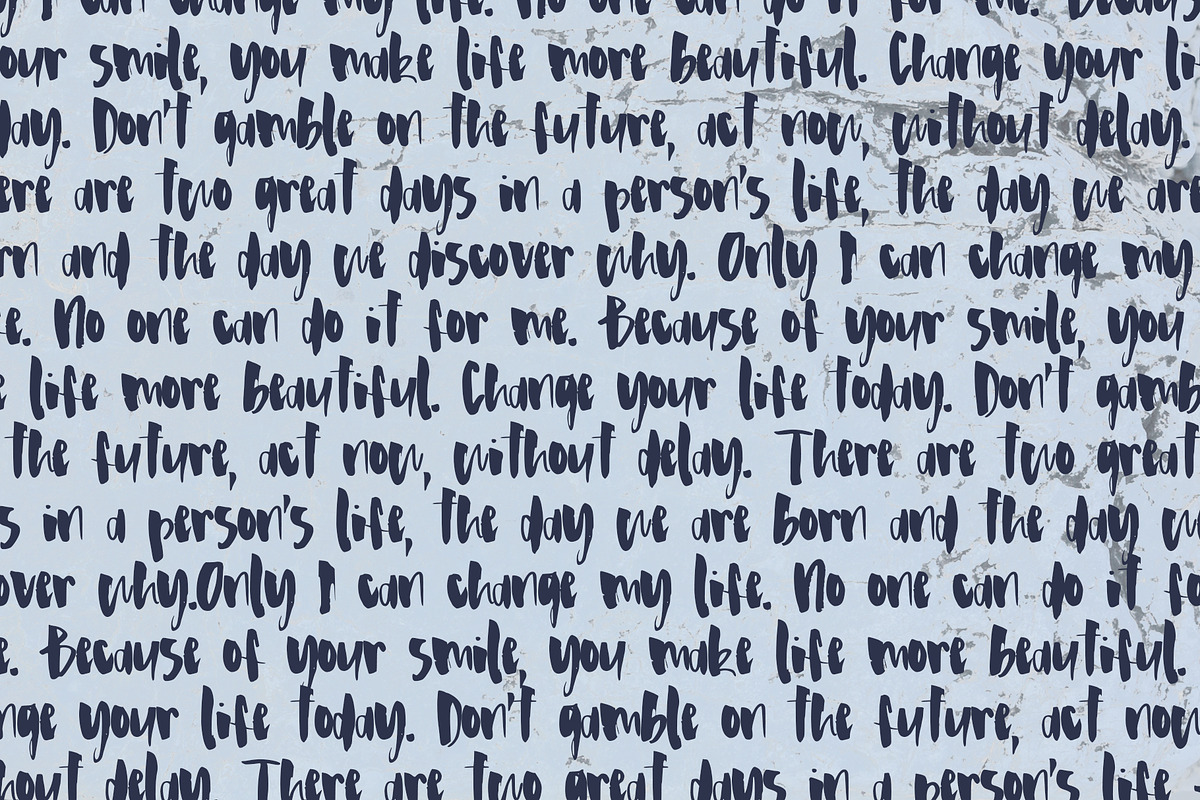 can change my life. No one can do it for me. Becaus
our smile, you make life more beautiful. Change your li
day. Don't gamble on the future, act now, without delay.
ere are two great days in a person's life, the day we are
rn and the day we discover why. Only I can change my
e. No one can do it for me. Because of your smile, you
e life more beautiful. Change your life today. Don't gamb
the future, act now, without delay. There are two great
s in a person's life, the day we are born and the day w
over why.Only I can change my life. No one can do it fo
e. Because of your smile, you make life more beautiful.
nge your life today. Don't gamble on the future, act now
hout delay. There are two great days in a person's life